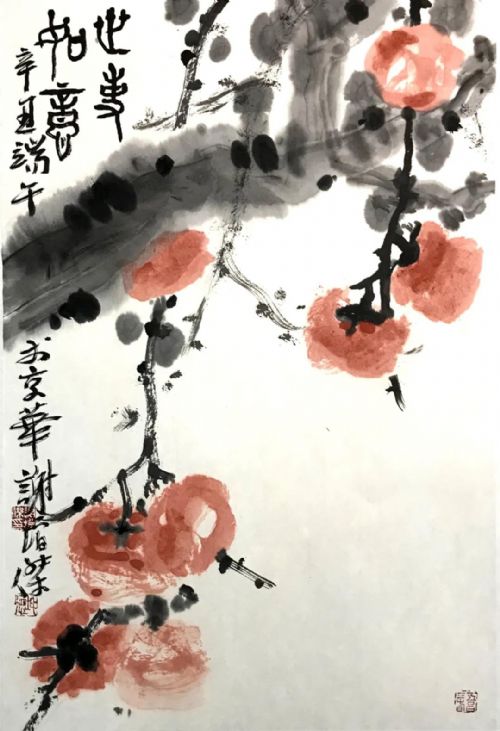 世事
如意
辛丑端午
於京華謝傑